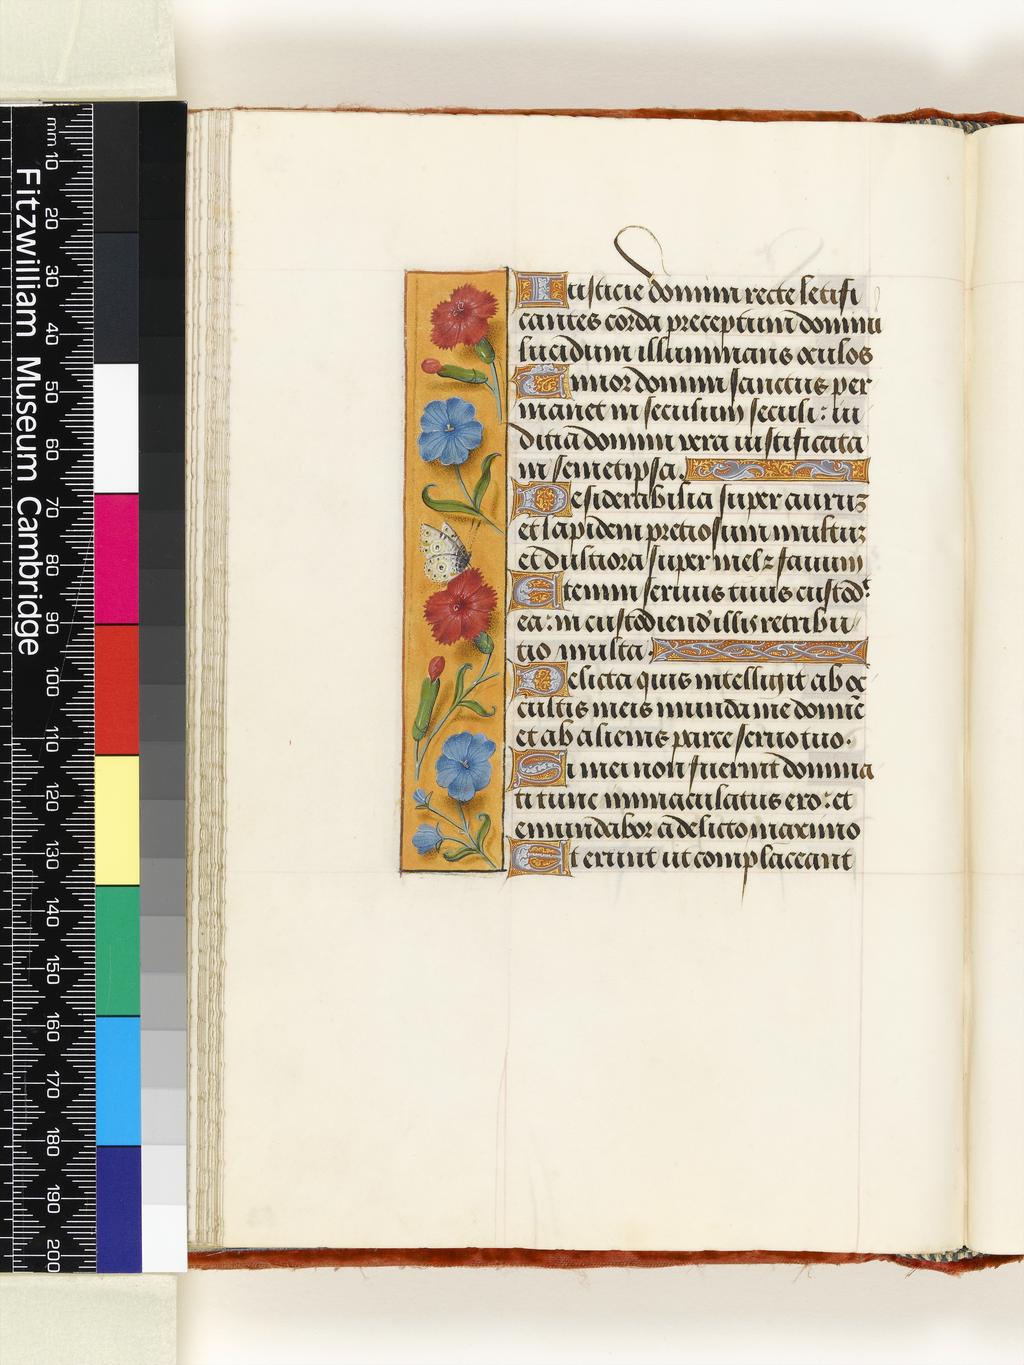 mm 10 20 30 40 50 60 70 80 90 100 110 120 130 140 150 160 170 180 190 200
Fitzwilliam Museum Cambridge
Iusticie domini recte letifi
cantes corda preceptum domini
lucidum illuminans oculos
Timor domini sanctus per
manet in seculum seculi: iu
ditia domini vera iustificata
in semetipsa.
Desiderabilia super aurum
et lapidem pretiosum multum
et dulciora super mel z favum
Etenim servus tuus custod
ea: in custodiend illis retribu
tio multa.
Delicta quis intelligit ab oc
cultis meis munda me domīe
et ab alienis parce servo tuo.
Si mei non fuerint domina
ti tunc immaculatus ero: et
emundabor a delicto maximo
Et erunt ut complaceant